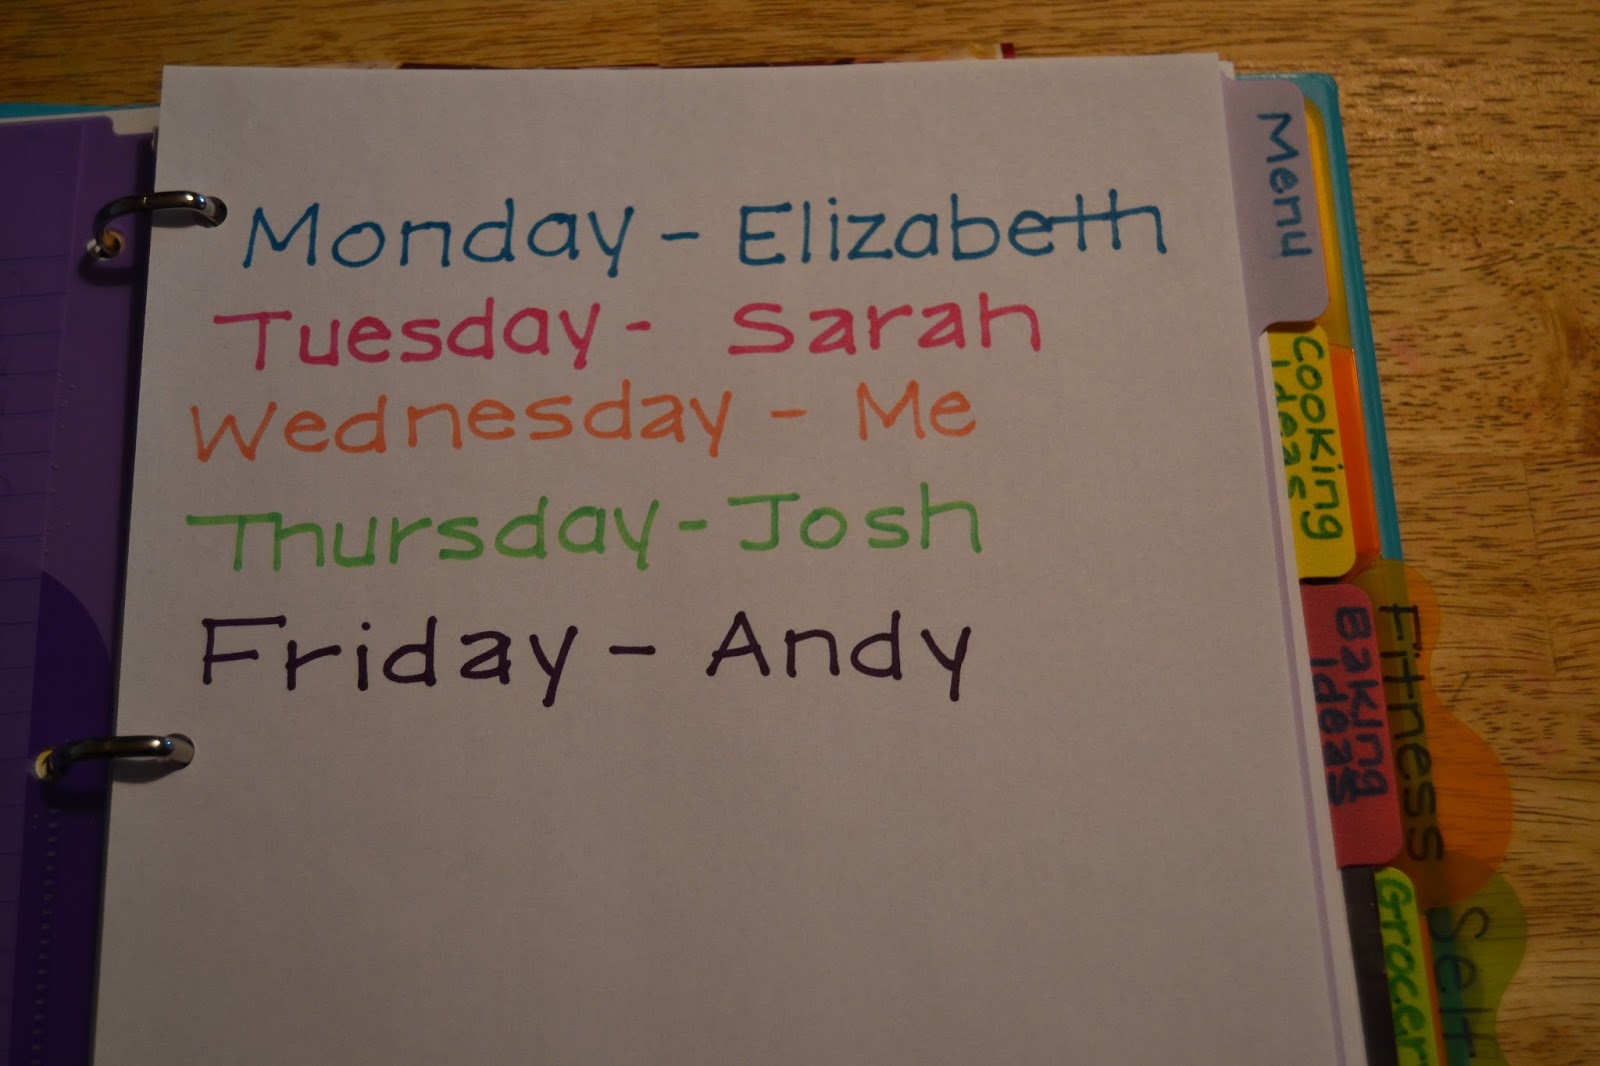 Monday - Elizabeth
Tuesday - Sarah
Wednesday - Me
Thursday - Josh
Friday - Andy
Menu
Cooking
Ideas
Baking
Ideas
Fitness